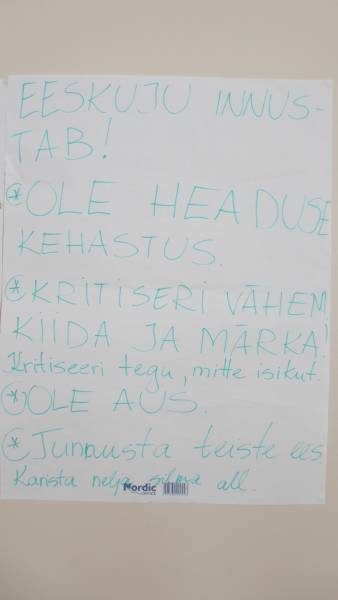 EESKUJU INNUS-
TAB!
* OLE HEADUSE
KEHASTUS.
* KRITISERI VÄHEM
KIIDA JA MÄRKA!
Kritiseeri tegu, mitte isikut.
* OLE AUS.
* Junnusta teiste ees.
Karista nelja silma all.
Nordic